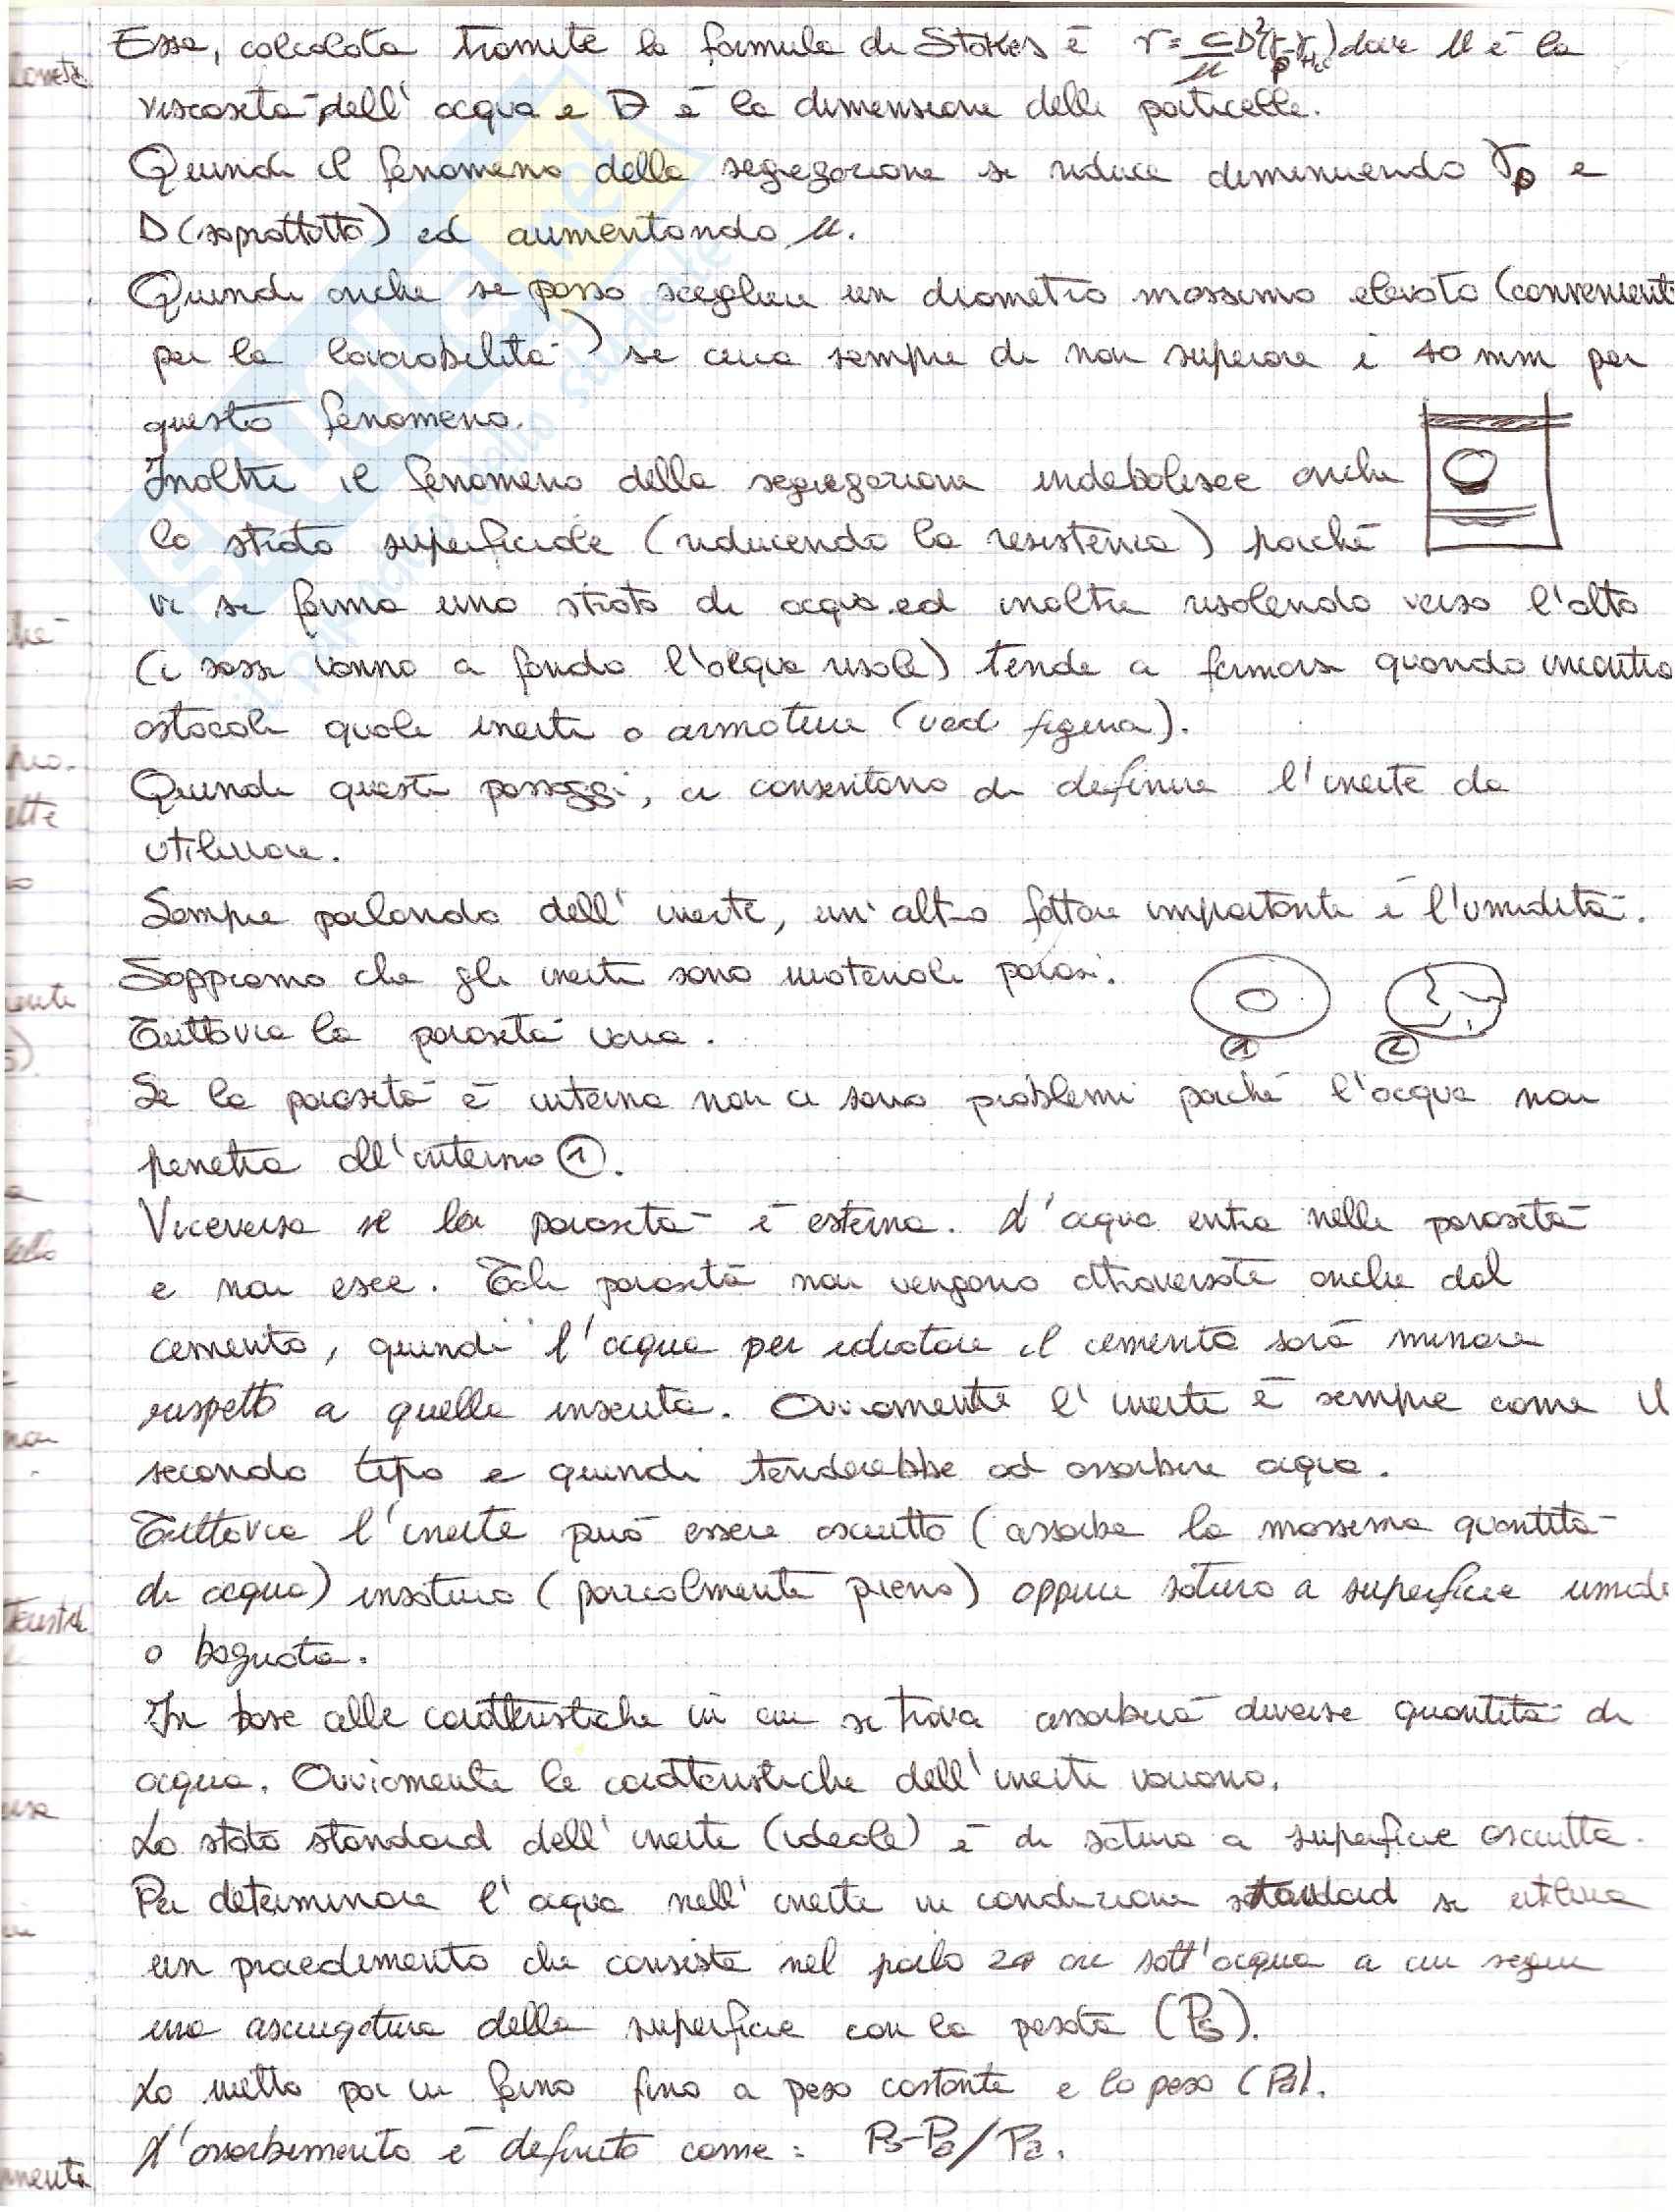 Essa, calcolata tramite la formula di Stokes è v = C/μ D²(γp-γH2O) dove μ è la
viscosità dell' acqua e D è la dimensione delle particelle.
Quindi il fenomeno della segregazione si riduce diminuendo γp e
D (soprattutto) ed aumentando μ.
Quindi anche se posso scegliere un diametro massimo elevato (conveniente
per la lavorabilità) si cerca sempre di non superare i 40 mm per
questo fenomeno.
Inoltre il fenomeno della segregazione indebolisce anche
lo strato superficiale (riducendo la resistenza) poiché
vi si forma uno strato di acqua ed inoltre risalendo verso l'alto
(i sassi vanno a fondo l'acqua risale) tende a fermarsi quando incontra
ostacoli quali inerti o armature (ved figura).
Quindi questi passaggi, ci consentono di definire l'inerte da
utilizzare.
Sempre parlando dell' inerte, un'altro fattore importante è l'umidità.
Sappiamo che gli inerti sono materiali porosi.
Tuttavia la porosità varia.
1 2
Se la porosità è interna non ci sono problemi poiché l'acqua non
penetra all'interno 1.
Viceversa se la porosità è esterna. L'acqua entra nelle porosità
e non esce. Tali porosità non vengono attraversate anche dal
cemento, quindi l'acqua per idratare il cemento sarà minore
rispetto a quella inserita. Ovviamente l'inerte è sempre come il
secondo tipo e quindi tenderebbe ad assorbire acqua.
Tuttavia l'inerte può essere asciutto (assorbe la massima quantità
di acqua) insaturo (parzialmente pieno) oppure saturo a superficie umida
o bagnata.
In base alle caratteristiche in cui si trova assorbirà diverse quantità di
acqua. Ovviamente le caratteristiche dell'inerte variano.
Lo stato standard dell'inerte (ideale) è di saturo a superficie asciutta.
Per determinare l'acqua nell'inerte in condizione standard si utilizza
un procedimento che consiste nel porlo 24 ore sott'acqua a cui segue
una asciugatura della superficie con la pesata (Ps).
Lo metto poi in forno fino a peso costante e lo peso (Pa).
L'assorbimento è definito come: Ps-Pa/Pa.